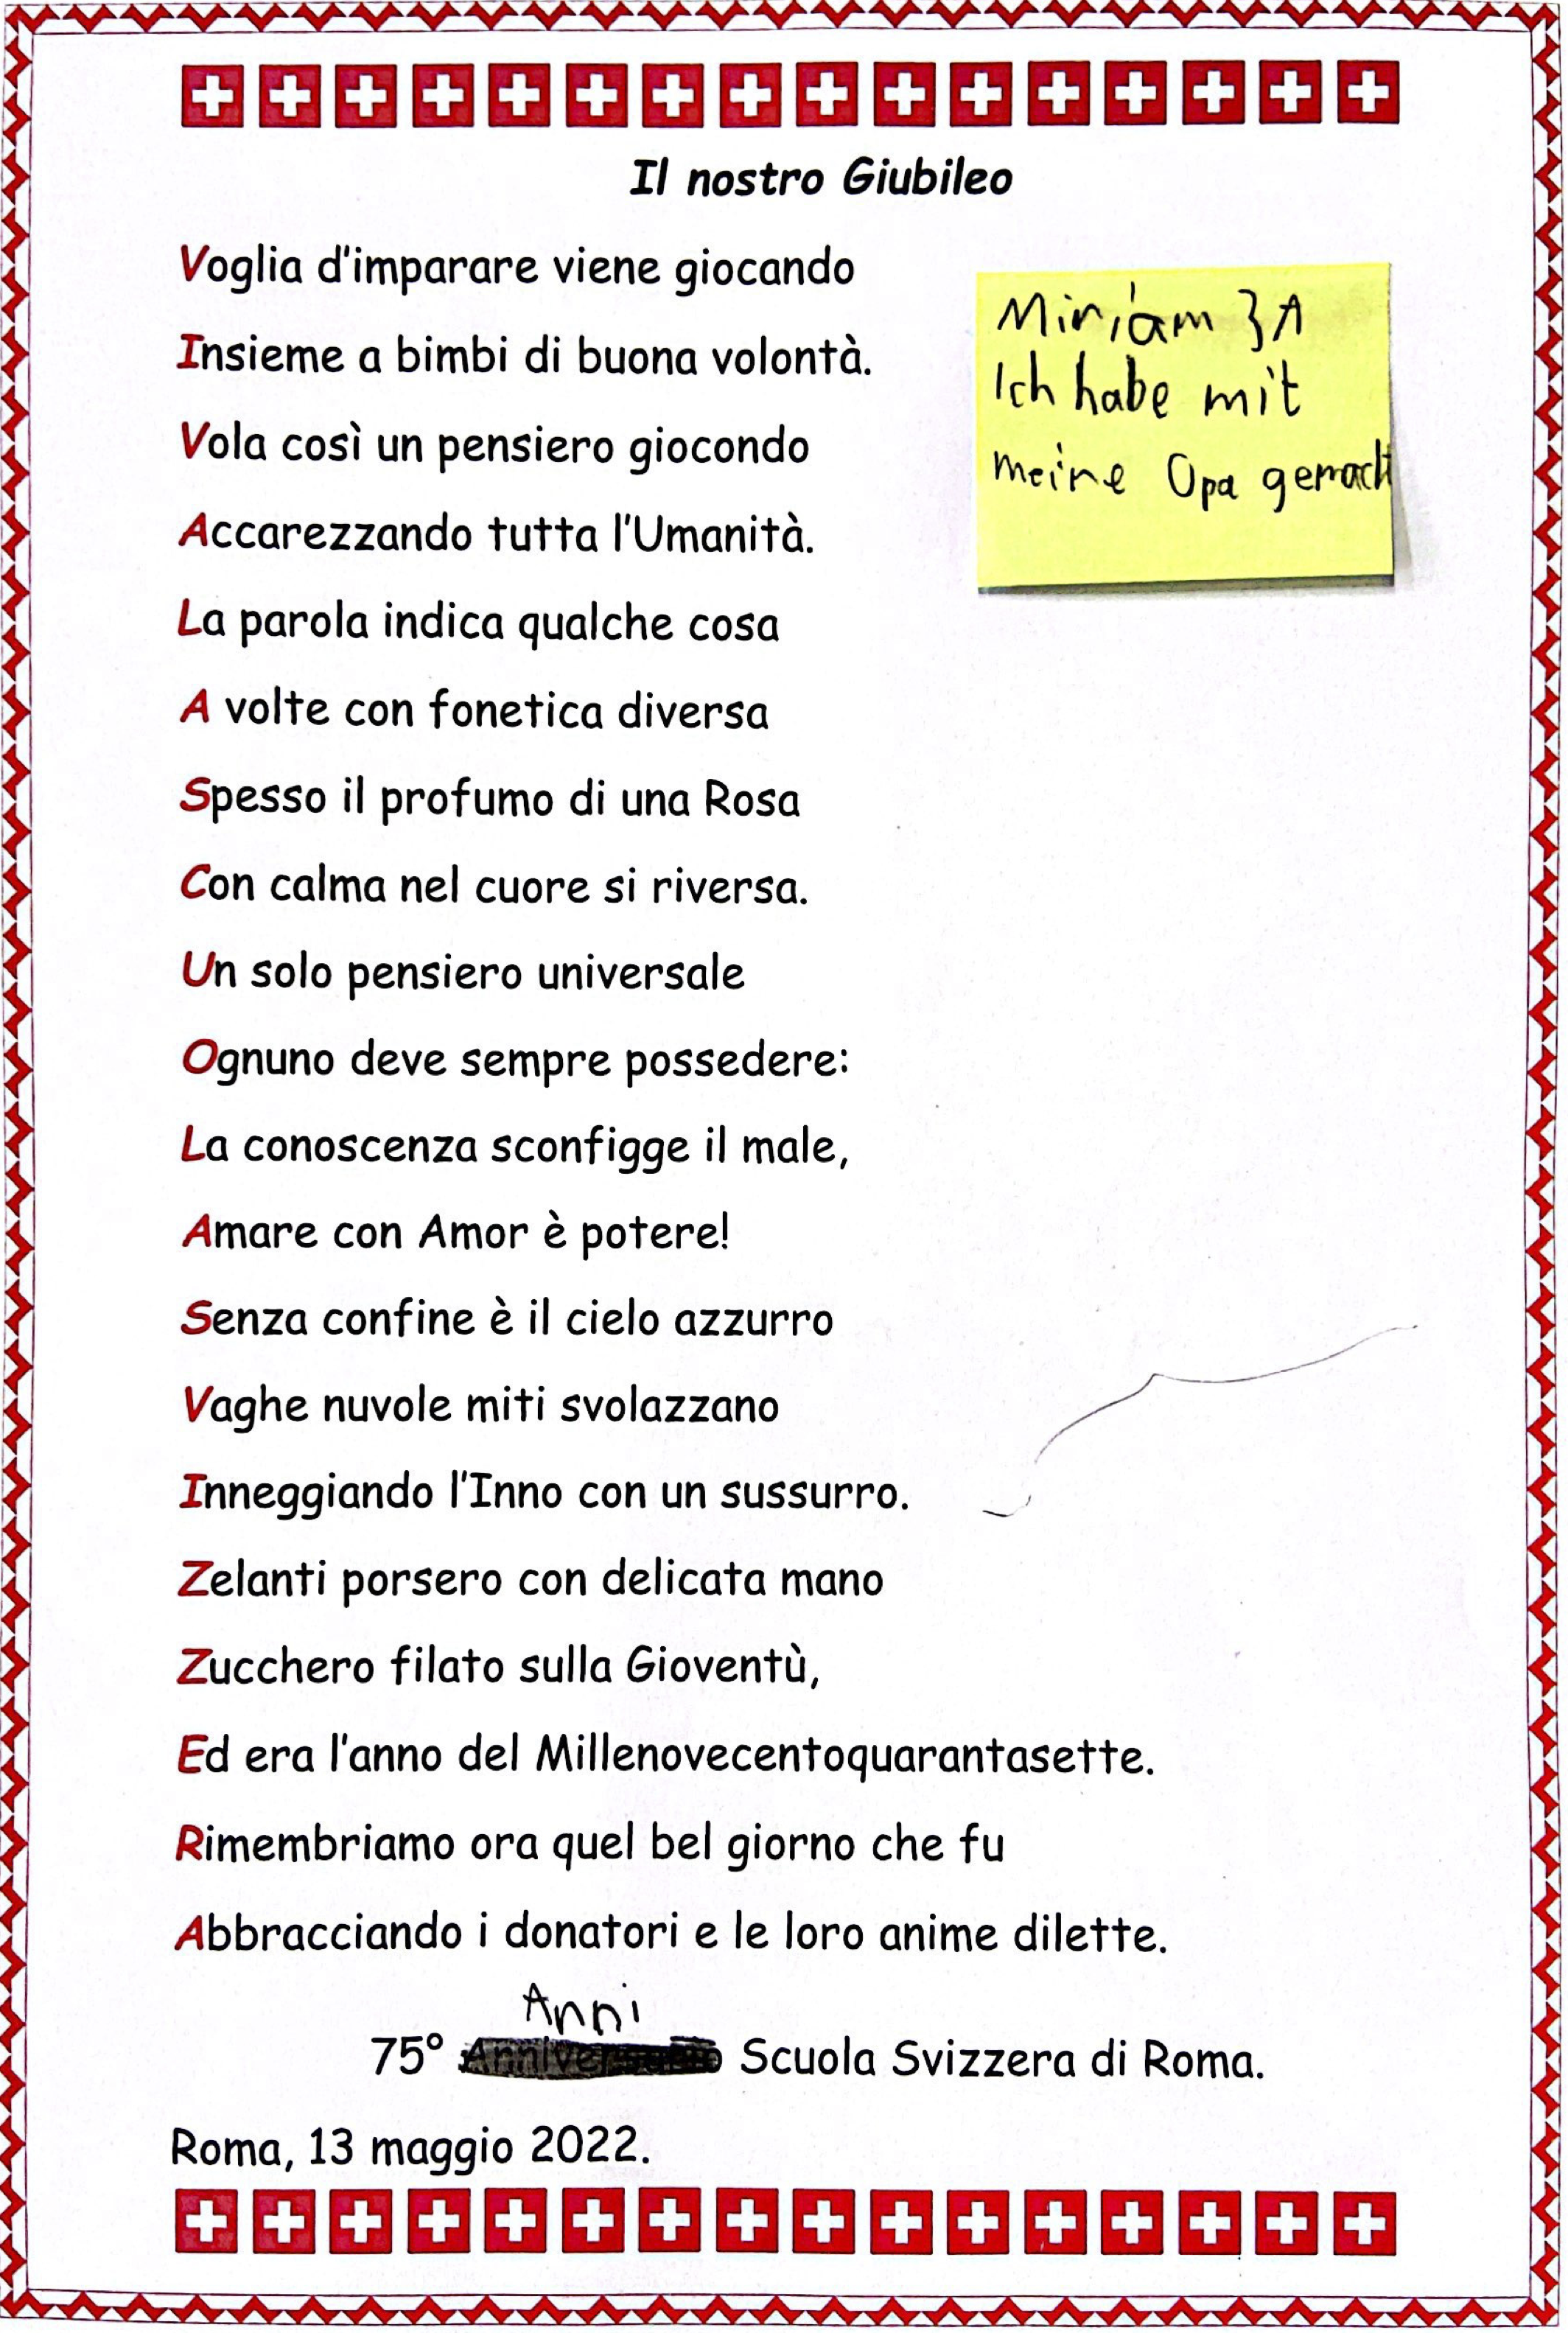 Il nostro Giubileo
Voglia d'imparare viene giocando
Insieme a bimbi di buona volontà.
Vola così un pensiero giocondo
Accarezzando tutta l'Umanità.
La parola indica qualche cosa
A volte con fonetica diversa
Spesso il profumo di una Rosa
Con calma nel cuore si riversa.
Un solo pensiero universale
Ognuno deve sempre possedere:
La conoscenza sconfigge il male,
Amare con Amor è potere!
Senza confine è il cielo azzurro
Vaghe nuvole miti svolazzano
Inneggiando l'Inno con un sussurro.
Zelanti porsero con delicata mano
Zucchero filato sulla Gioventù,
Ed era l'anno del Millenovecentoquarantasette.
Rimembriamo ora quel bel giorno che fu
Abbracciando i donatori e le loro anime dilette.
Anni
75° Anniversario Scuola Svizzera di Roma.
Roma, 13 maggio 2022.
Miriam 3A
Ich habe mit
meine Opa gemacht